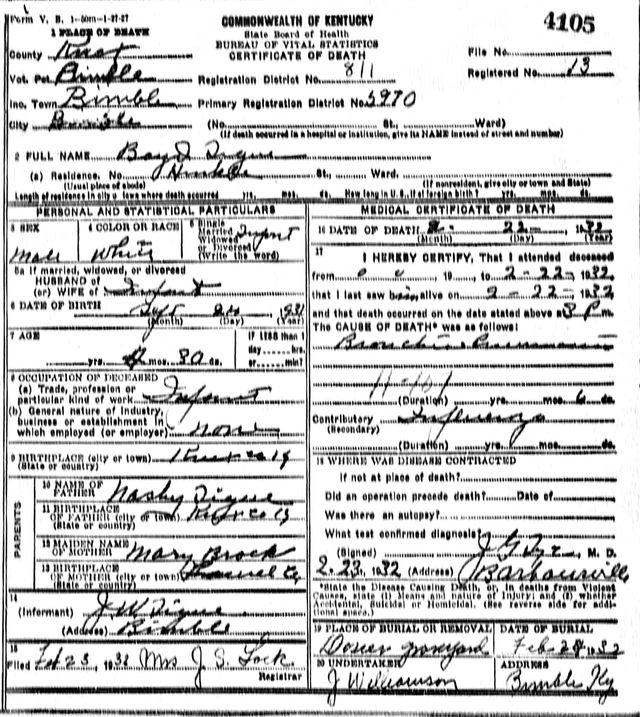 Form V. B. 1-50m-1-27-27
4105
1 PLACE OF DEATH
COMMONWEALTH OF KENTUCKY
State Board of Health
BUREAU OF VITAL STATISTICS
CERTIFICATE OF DEATH
County Knox
File No.
Vot. Pct. Bimble
Registration District No. 811
Registered No. 13
Inc. Town Bimble
Primary Registration District No. 5970
City (No. St., Ward)
(If death occurred in a hospital or institution, give its NAME instead of street and number)
2 FULL NAME Boyd
(a) Residence. No. Hinkle St., Ward.
(Usual place of abode) (If nonresident, give city or town and State)
Length of residence in city or town where death occurred yrs. mos. ds. How long in U. S., if of foreign birth? yrs. mos. ds.
PERSONAL AND STATISTICAL PARTICULARS
3 SEX
Male
4 COLOR OR RACE
White
5 Single
Married
Widowed
or Divorced
(Write the word)
Infant
5a If married, widowed, or divorced
HUSBAND of
(or) WIFE of Infant
6 DATE OF BIRTH
(Month) (Day) (Year)
7 AGE
yrs. mos. ds.
IF LESS than 1
day......hrs.
or......min?
8 OCCUPATION OF DECEASED
(a) Trade, profession or
particular kind of work Infant
(b) General nature of industry,
business or establishment in
which employed (or employer) none
9 BIRTHPLACE (city or town)
(State or country)
PARENTS
10 NAME OF
FATHER Nasby
11 BIRTHPLACE
OF FATHER (city or town) Knox co Ky
(State or country)
12 MAIDEN NAME
OF MOTHER Mary Brock
13 BIRTHPLACE
OF MOTHER (city or town)
(State or country)
14
(Informant) J. W.
(Address) Bimble
15
Filed Feb 23, 1932 Mrs J. S. Lock
Registrar
MEDICAL CERTIFICATE OF DEATH
16 DATE OF DEATH 2- 22- 1932
(Month) (Day) (Year)
17
I HEREBY CERTIFY, That I attended deceased
from 19 , to 2-22-1932
that I last saw him alive on 2-22-1932
and that death occurred on the date stated above at 3 P.m.
The CAUSE OF DEATH* was as follows:
(Duration) yrs. mos. 6 ds.
Contributory Influenza
(Secondary)
(Duration) yrs. mos. ds.
18 WHERE WAS DISEASE CONTRACTED
If not at place of death?
Did an operation precede death? Date of
Was there an autopsy?
What test confirmed diagnosis?
(Signed) M. D.
2-23, 1932 (Address) Barbourville
*State the Disease Causing Death, or, in deaths from Violent
Causes, state (1) Means and nature of Injury; and (2) whether
Accidental, Suicidal or Homicidal. (See reverse side for addi-
tional space.)
19 PLACE OF BURIAL OR REMOVAL
graveyard
DATE OF BURIAL
Feb 24 1932
20 UNDERTAKER
J Williamson
ADDRESS
Bimble Ky